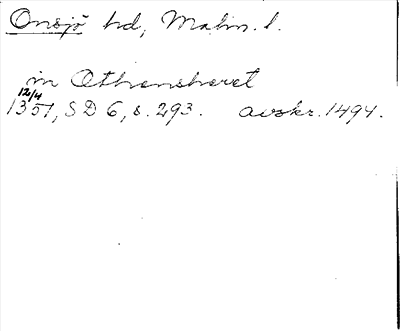 Onsjö hd, Malm. l.
in Othensheret
12/4
1351, SD 6, s. 293. avskr. 1494.